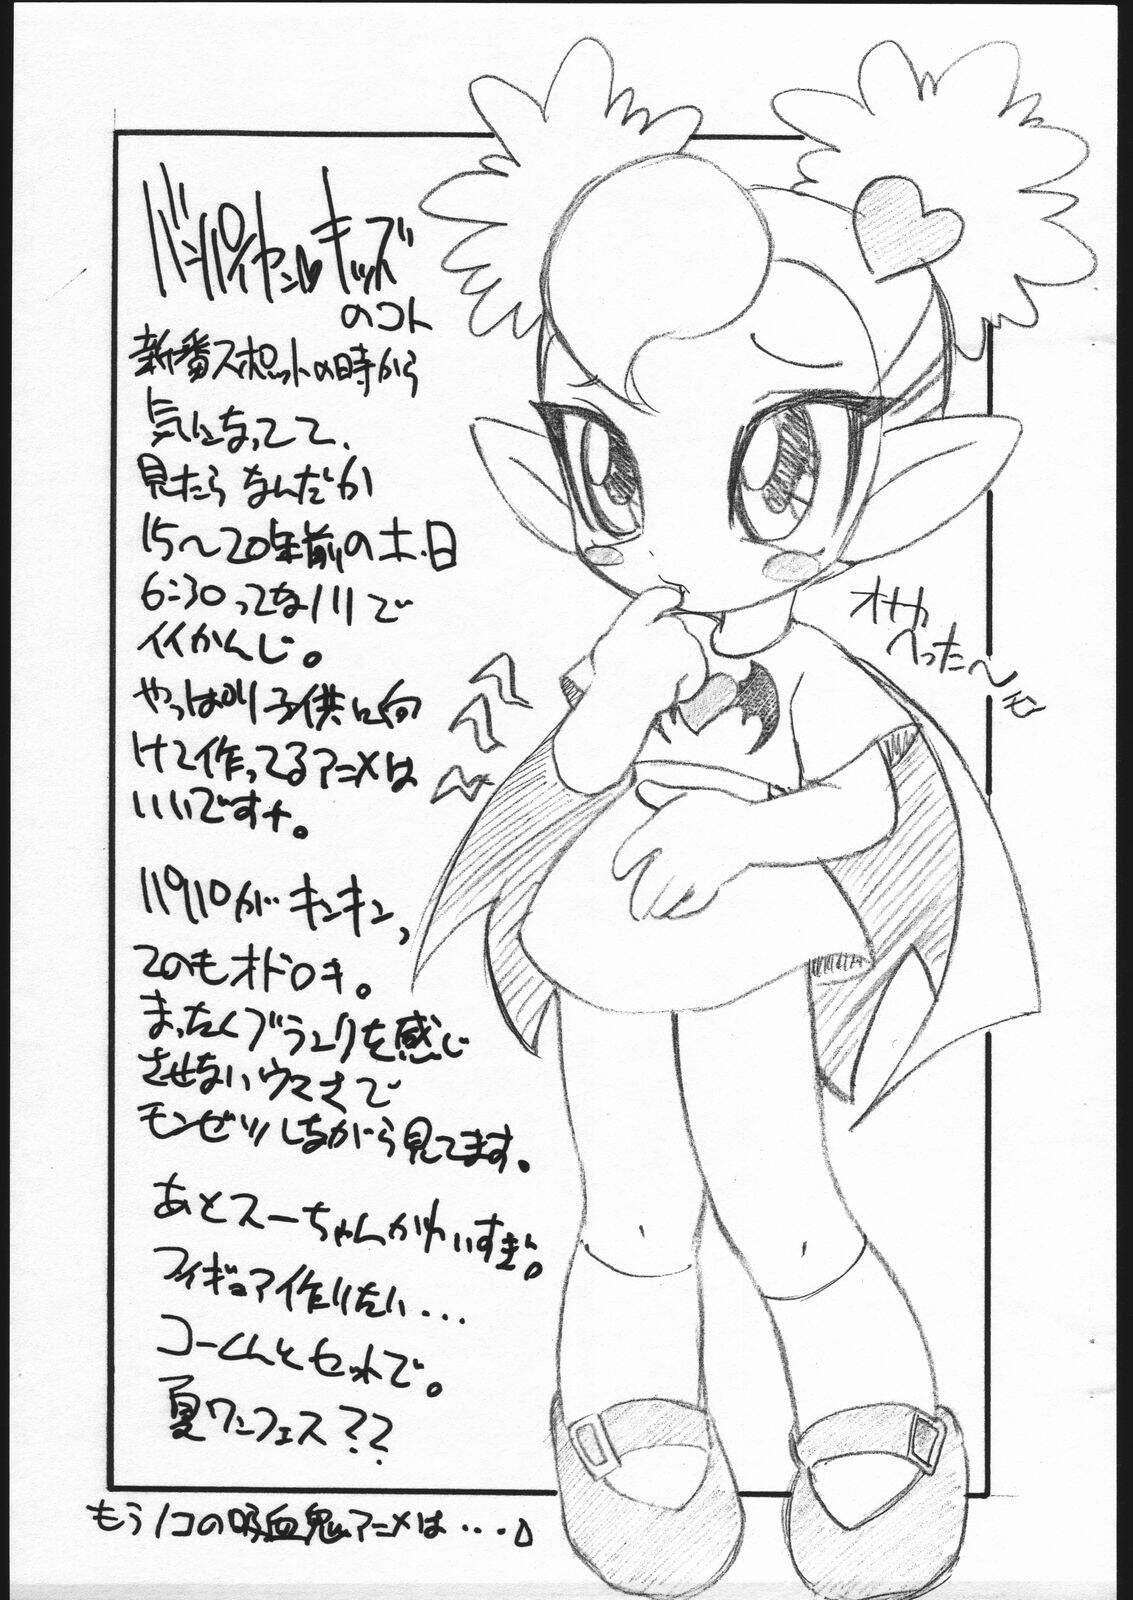 バンパイヤン♥キッズ
のコト
新番スポットの時から
気になってて、
見たらなんだか
15〜20年前の土・日
6:30ってなノリで
イイかんじ。
やっぱり子供に向
けて作ってるアニメは
いいですナ。
パパ役がキンキン、
てのもオドロキ。
まったくブランクを感じ
させないウマさで
モンゼツしながら見てます。
あとスーちゃんかわいすぎ。
フィギュア作りたい...
コーくんとセットで。
夏ワンフェス??
もう1コの吸血鬼アニメは...
オナカ
へった〜